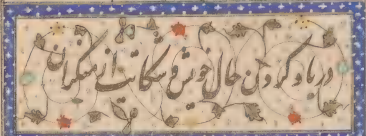 در یاد کردن حال خویش و شکایت از منکران